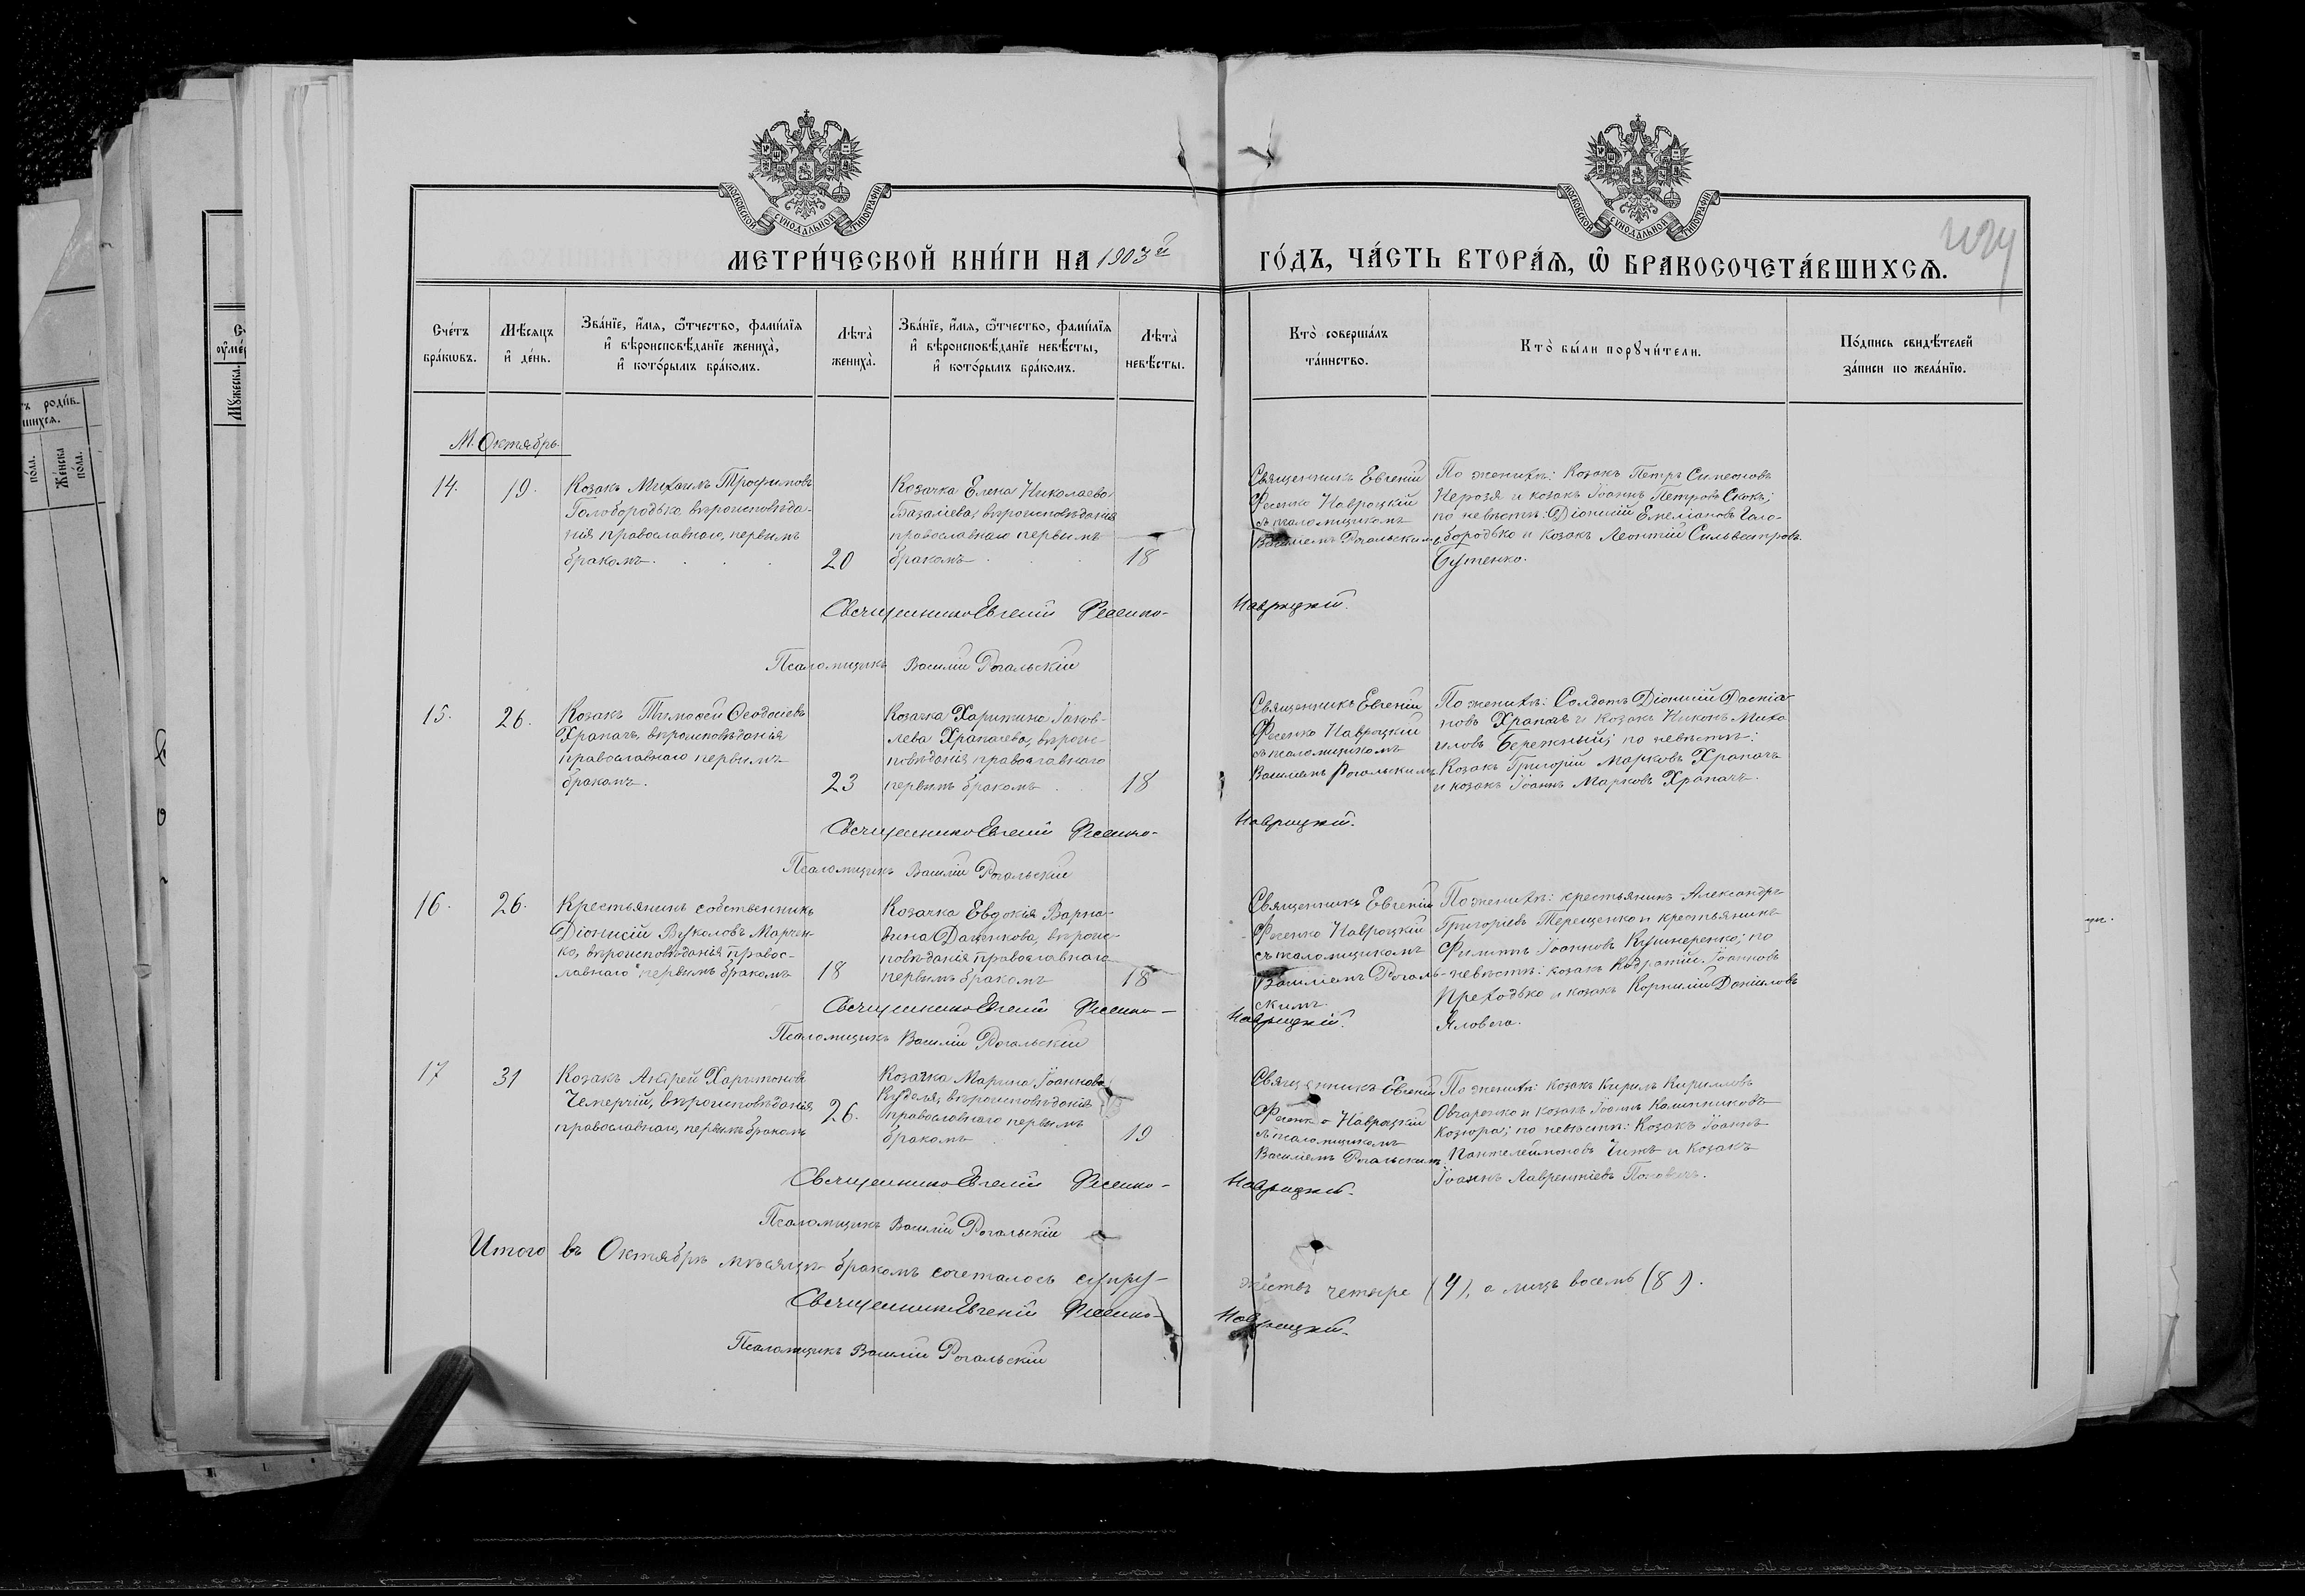 МОСКОВСКОЙ СѴНОДАЛЬНОЙ ТИПОГРАФІИ
МОСКОВСКОЙ СѴНОДАЛЬНОЙ ТИПОГРАФІИ
МЕТРИ́ЧЕСКОЙ КНИ́ГИ НА 1903й ГО́ДЪ, ЧА́СТЬ ВТОРА́Ѧ, Ѡ БРАКОСОЧЕТА́ВШИХСѦ.
Сче́тъ бра́кωвъ.
Мѣ́сѧцъ и҆ де́нь.
Зва́нїе, и҆́мѧ, ѻ҆́тчество, фами́лїѧ
и҆ вѣроисповѣ́данїе жениха̀,
и҆ кото́рымъ бра́комъ.
Лѣта̀ жениха̀.
Зва́нїе, и҆́мѧ, ѻ҆́тчество, фами́лїѧ
и҆ вѣроисповѣ́данїе невѣ́сты,
и҆ кото́рымъ бра́комъ.
Лѣта̀ невѣ́сты.
Кто̀ соверша́лъ
та́инство.
Кто̀ бы́ли порꙋчи́тели.
По́дпись свидѣ́телей
за́писи по жела́нїю.
М. Октябрь.
14.
19.
Козакъ Михаилъ Трофимовъ
Голобородько вѣроисповѣда-
нія православнаго, первымъ
бракомъ.
20
Козачка Елена Николаева
Базалiева, вѣроисповѣданія
православнаго первымъ
бракомъ
18
Священникъ Евгеній
Фесенко Навроцкій
съ псаломщикомъ
Василіемъ Рогальскимъ.
По женихѣ: Козакъ Петръ Симеоновъ
Нерозя и козакъ Іоаннъ Петровъ Скокъ;
по невѣстѣ: Діонисій Емеліановъ Голо-
бородько и козакъ Леонтій Сильвестровъ
Бутенко.
Священникъ Евгеній Фесенко-Навроцкій.
Псаломщикъ Василій Рогальскій
15.
26.
Козакъ Тимофей Ѳеодосіевъ
Храпачъ, вѣроисповѣданья
православнаго первымъ
бракомъ.
23
Козачка Харитина Іаков-
лева Храпачева, вѣроис-
повѣданія православнаго
первымъ бракомъ
18
Священникъ Евгеній
Фесенко Навроцкій
съ псаломщикомъ
Василіемъ Рогальскимъ
По женихѣ: Солдатъ Діонисій Даміа-
новъ Храпачъ и козакъ Никонъ Миха
иловъ Бережный; по невѣстѣ:
Козакъ Григорій Марковъ Храпачъ
и козакъ Іоаннъ Марковъ Храпачъ.
Священникъ Евгеній Фесенко-Навроцкій.
Псаломщикъ Василій Рогальскій
16.
26.
Крестьянинъ собственникъ
Діонисій Вуколовъ Марчен-
ко, вѣроисповѣданія правос-
лавнаго первымъ бракомъ
18
Козачка Евдокія Варна-
вина Даценкова, вѣроис-
повѣданія православнаго
первымъ бракомъ
18
Священникъ Евгеній
Фесенко Навроцкій
съ псаломщикомъ
Василіемъ Рогаль-
скимъ.
По женихѣ: крестьянинъ Александръ
Григоріевъ Терещенко и крестьянинъ
Филиппъ Іоанновъ Кушнеренко; по
невѣстѣ: козакъ Кодратій Іоанновъ
Приходько и козакъ Корнилій Даніиловъ
Яловега.
Священникъ Евгеній Фесенко-Навроцкій.
Псаломщикъ Василій Рогальскій
17
31
Козакъ Андрей Харитоновъ
Чемерчій, вѣроисповѣданія
православнаго, первымъ бракомъ
26.
Козачка Марина Іоаннова
Куделя, вѣроисповѣданія
православнаго первымъ
бракомъ
19
Священникъ Евгеній
Фесенко Навроцкій
съ псаломщикомъ
Василіемъ Рогальскимъ
По женихѣ: козакъ Кирилъ Кирилловъ
Овчаренко и козакъ Іоаннъ Калинниковъ
Козюра; по невѣстѣ: Козакъ Іоаннъ
Пантелеймоновъ Чижъ и козакъ
Іоаннъ Лаврентіевъ Поповичъ.
Священникъ Евгеній Фесенко-Навроцкій.
Псаломщикъ Василій Рогальскій
Итого въ Октябрѣ мѣсяцѣ бракомъ сочеталось супру-жествъ четыре (4), а лицъ восемь (8).
Священникъ Евгеній Фесенко-Навроцкій.
Псаломщикъ Василій Рогальскій